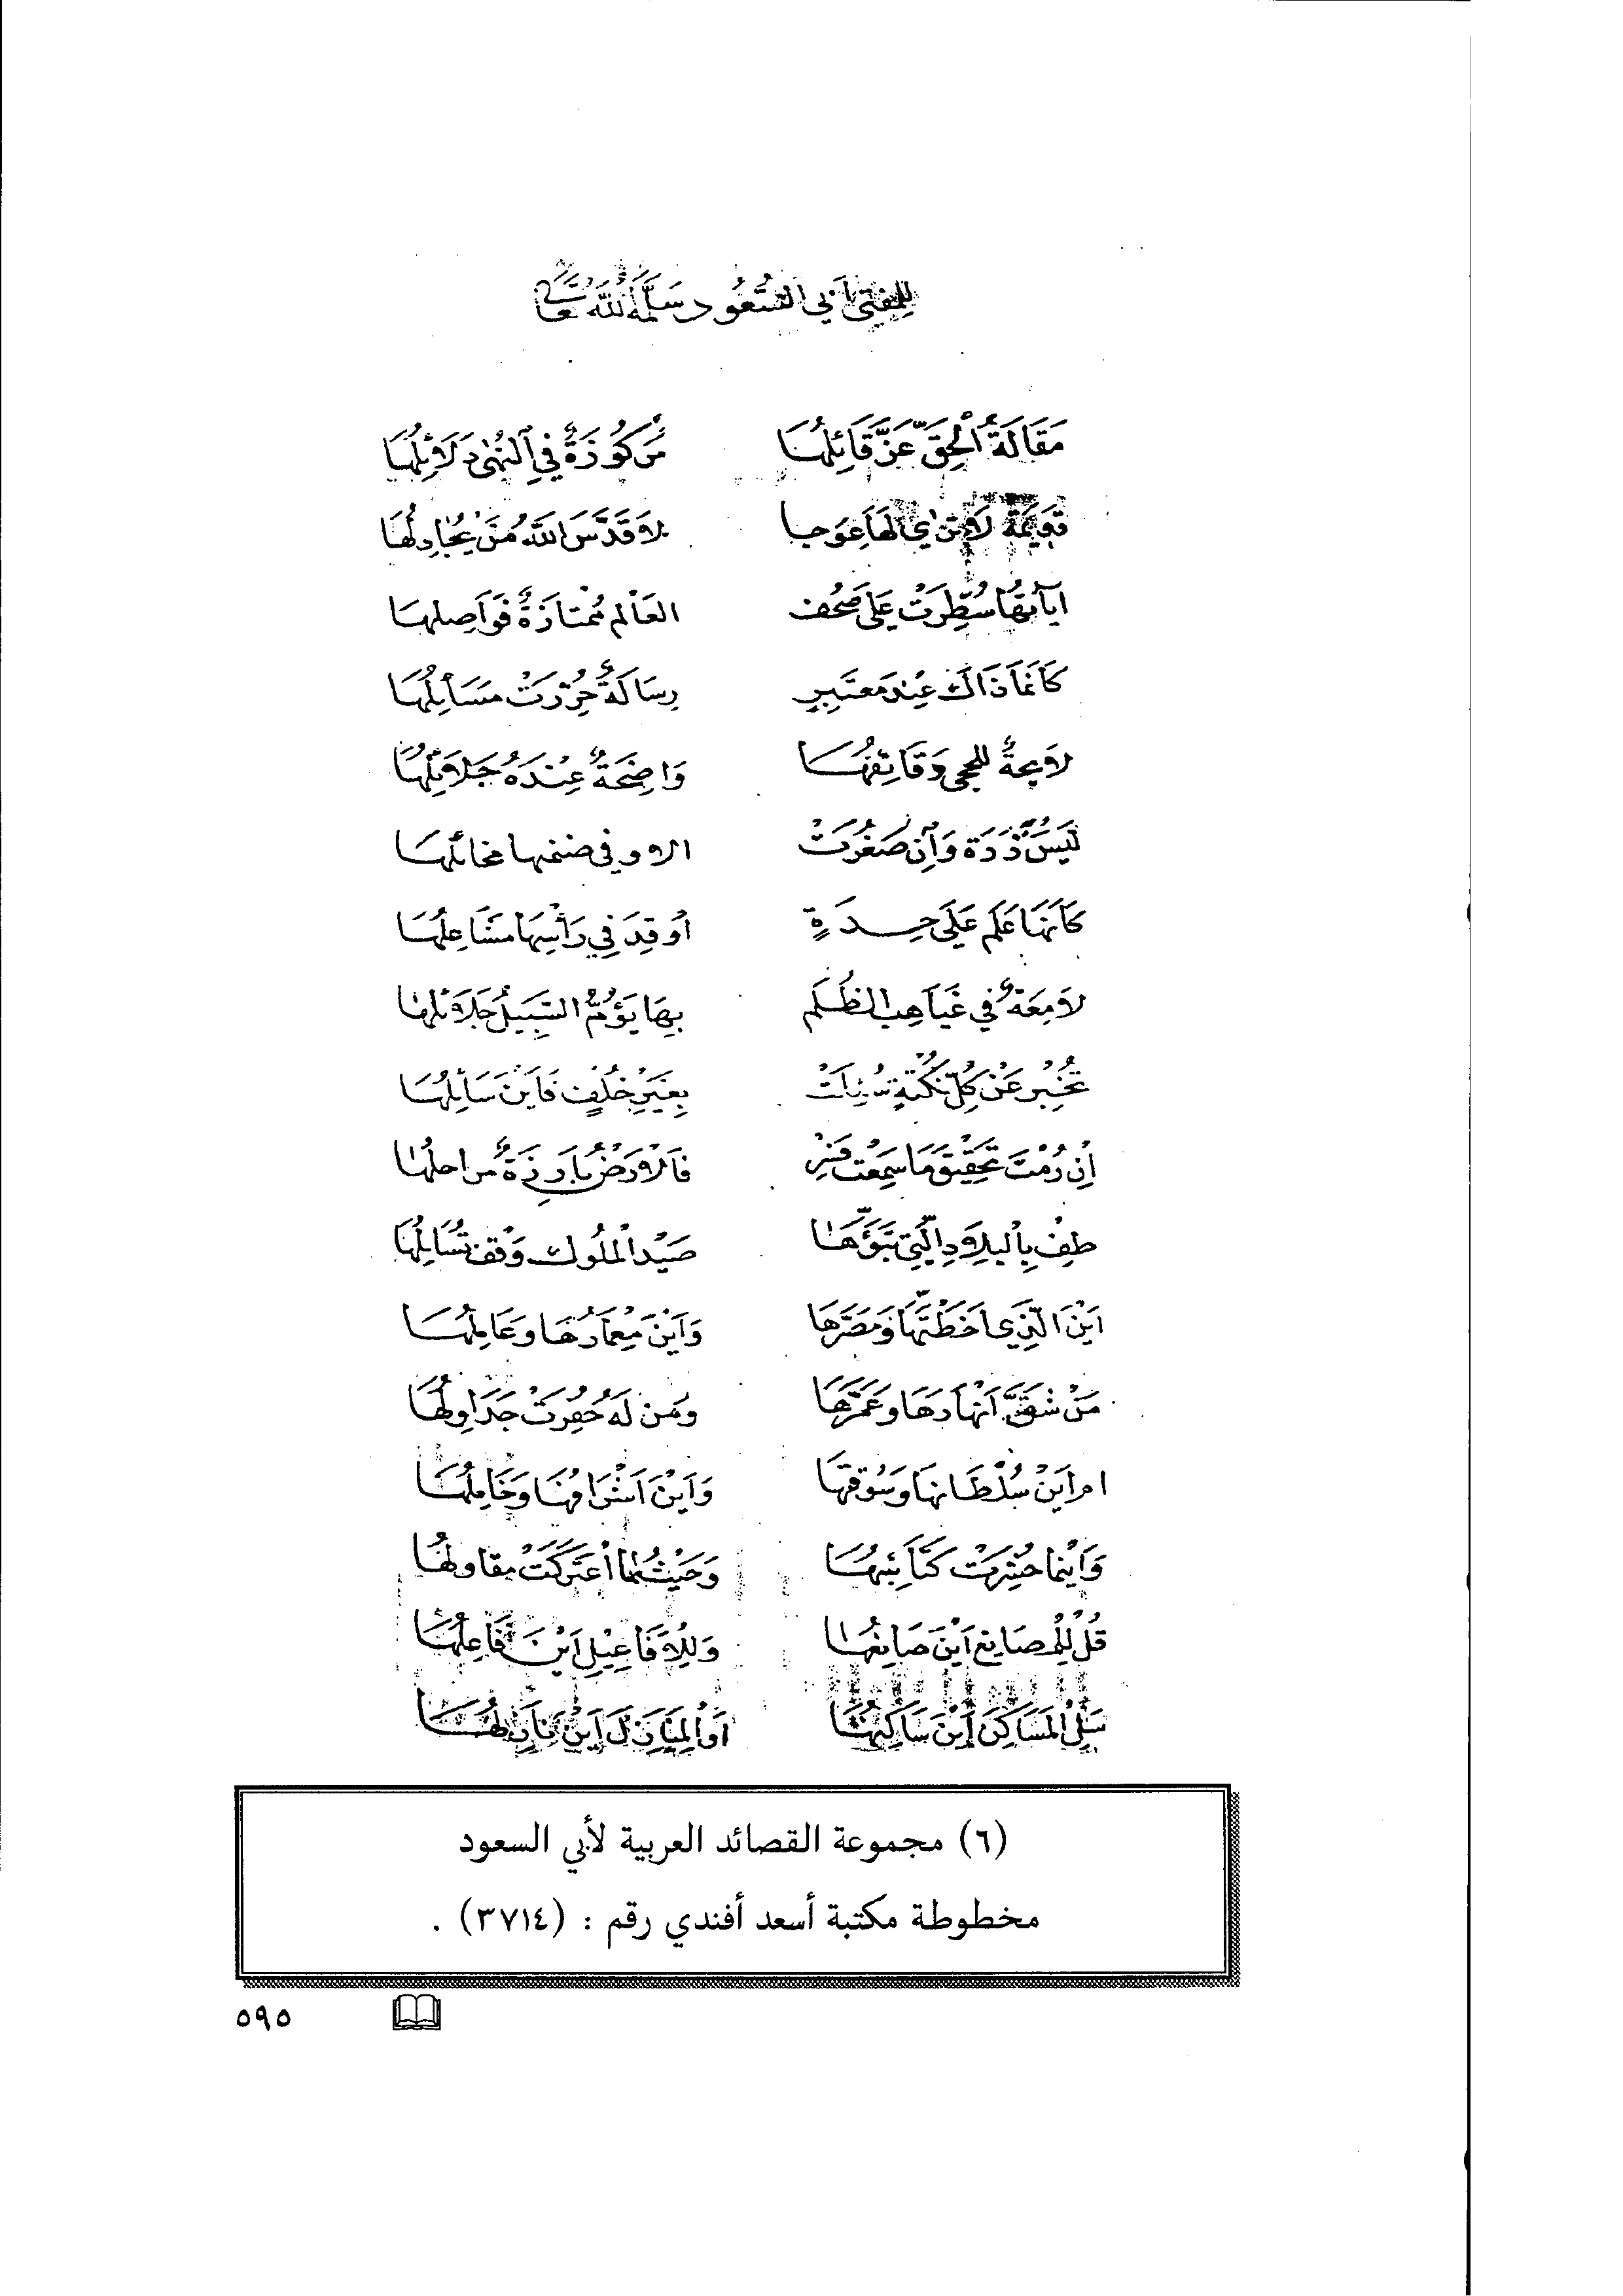 للمفتي أبي السُّعُود سَلَّمَهُ اللهُ تعالى
مَقَالَةُ الْحَقِّ عَزَّ قَائِلُهَا مَرْكُوزَةٌ فِي النُّهٰى دَلَائِلُهَا
قويمَةٌ لَا تَرٰى لَهَا عِوَجا لَا قَدَّسَ اللهُ مَنْ يُجَادِلُهَا
اياتُهَا سُطِّرَتْ عَلَى صُحُف العَالَم مُمْتَازَةٌ فَوَاصِلهَا
كَأنَّمَا ذَاكَ عِنْدَ مُعتَبِرٍ رِسَالَةٌ حُرِّرَتْ مَسَائِلُهَا
لَائِحَةٌ لِلحجى دَقَائِقُهَا وَاضِحَةٌ عِنْدَهُ جَلَائِلُهَا
لَيْسَ ذَرَة وَاِنْ صَغُرَتْ الا و في ضمنها مخائلهَا
كَأَنَّهَا عَلَم عَلَى حِدَةٍ اُوقِدَ فِي رَأْسِهَا مَشَاعِلُهَا
لَامِعَةٌ فِي غَيَاهِبِ الظُلَم بِهَا يَؤُمُّ السَّبِيلَ جَلَائلهَا
تُخْبِرُ عَنْ كُلِّ نُكْتَةٍ سُئِلَتْ بِغَيْرِ خُلْفٍ فَاَيْنَ سَائِلُهَا
اِنْ رُمْتَ تَحْقِيْقَ مَا سَمِعْت فَسِرْ فَالْاَرْضُ بَارِزَةٌ مراحلُهَا
طِفْ بِالْبِلَادِ الَّتِي تَبَوَّءَهَا صَيْدُ الْمُلُوك وَقِفْ تُسَائِلُهَا
اَيْنَ الَّذِي اخْتَطَّهَا وَمَصَّرَهَا وَاَيْنَ مِعْمَارُهَا وعَامِلُهَا
مَنْ شَقَّ اَنْهَارَهَا وعَمَّرَهَا ومَن لَهُ حُفِرَتْ جَدَاوِلُهَا
ام اَيْنَ سُلْطَانهَا وَسُوقتهَا وَاَيْنَ اَشْرَافُهَا وَخَامِلُهَا
وَاَيْنَما حُشِرَتْ كَتَائِبُهَا وَحَيْثُمَا اعْتَرَكَتْ مقاولُهَا
قُلْ لِلْمَصَانِع اَيْنَ صَانِعُهَا وَلِلْأَفَاعِيْلِ اَيْنَ فَاعِلُهَا
سَلِ الْمَسَاكِنَ اَيْنَ سَاكِنُهَا اَوِ الْمَنَازِلَ اَيْنَ نَازِلُهَا
(٦) مجموعة القصائد العربية لأبي السعود
مخطوطة مكتبة أسعد أفندي رقم : (٣٧١٤) .
٥٩٥